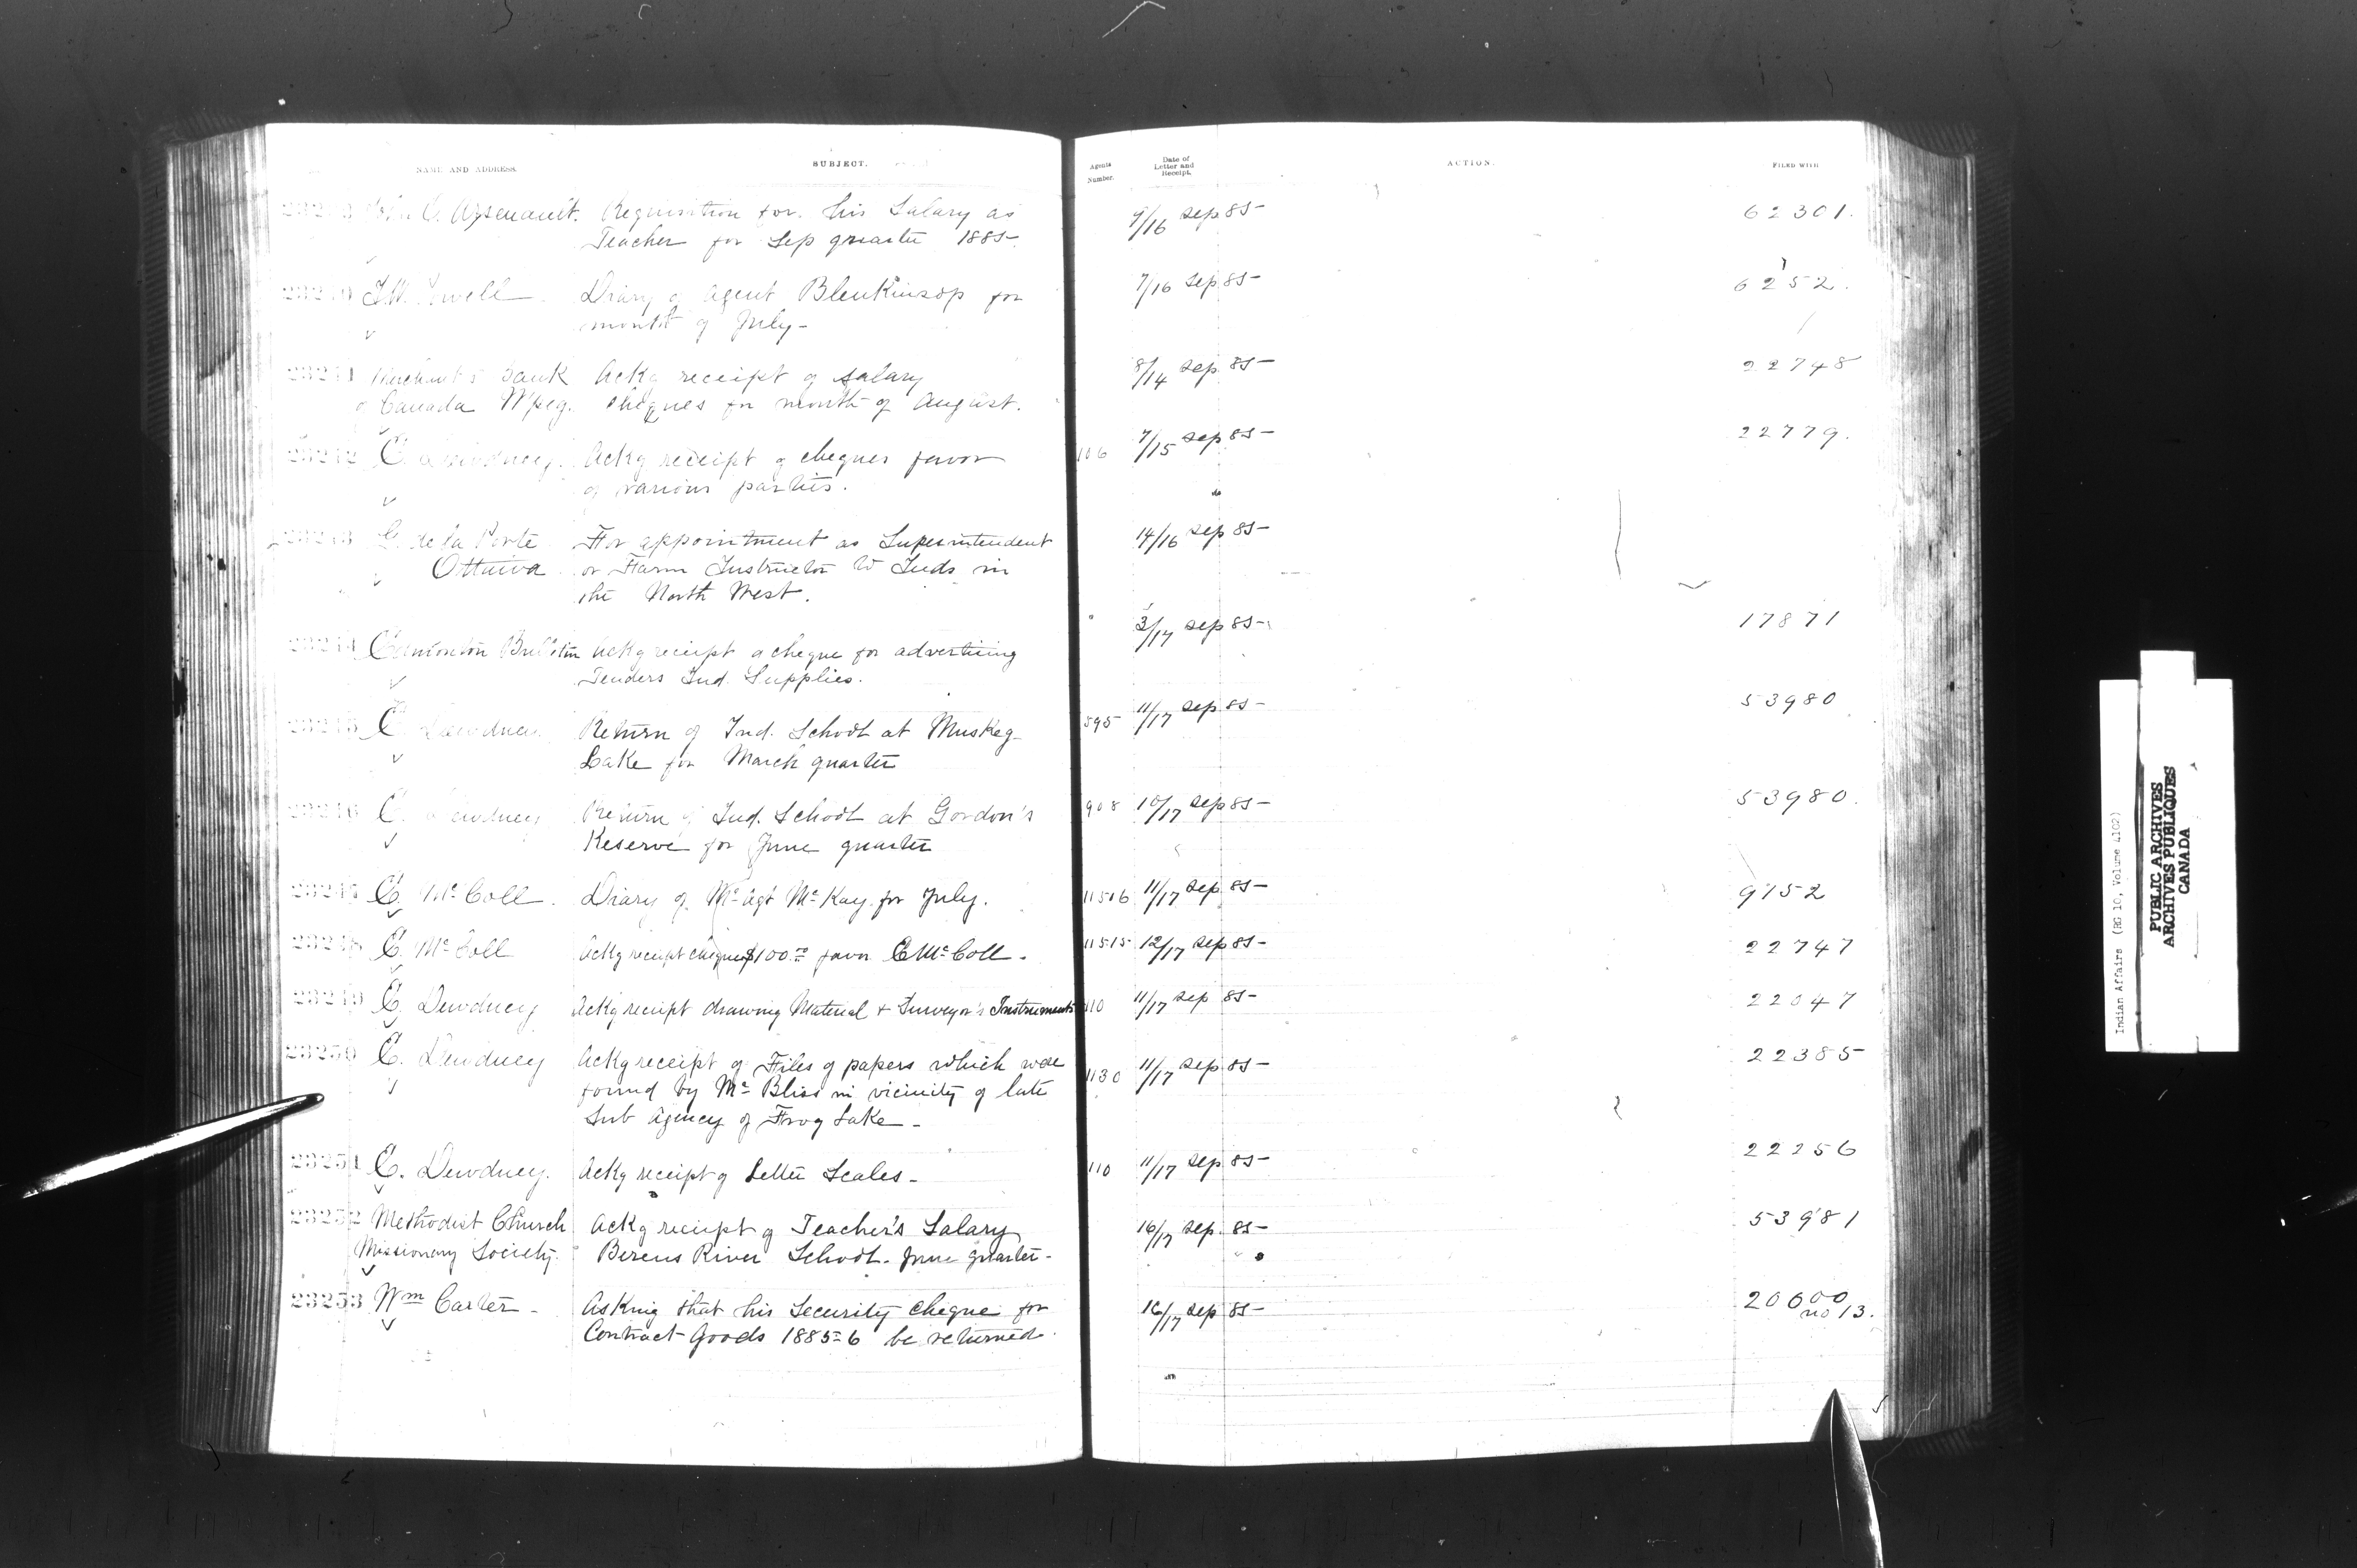 NAME AND ADDRESS.
SUBJECT.
Agents Number.
Date of Letter and Receipt.
ACTION.
FILED WITH
C. Arsenault. Requisition for his Salary as 9/16 Sep 85 62301.
Teacher for Sep quarter 1885
23240 Diary of Agent Blenkinsop for 7/16 Sep 85 6252.
month of July
23241 Merchant's Bank Ackg receipt of Salary 8/14 Sep 85 22748
of Canada Wpeg. cheques for month of August.
23242 E. Dewdney. Ackg receipt of cheques favor 106 7/15 Sep 85 22779.
of various parties.
23243 G. de la Porte For appointment as Superintendent 14/16 Sep 85
Ottawa or Farm Instructor to Inds in
the North West.
23244 Edmonton Bulletin Ackg receipt of cheque for advertising 3/17 Sep 85 17871
Tenders Ind. Supplies.
23245 E. Dewdney Return of Ind. School at Muskeg 895 11/17 Sep 85 53980
Lake for March quarter
23246 E. Dewdney Return of Ind. School at Gordon's 908 10/17 Sep 85 53980.
Reserve for June quarter
23247 E. McColl. Diary of Agt McKay for July. 11516 11/17 Sep 85 9152
23248 E. McColl Ackg receipt cheque $100.00 favor E McColl. 11515 12/17 Sep 85 22747
23249 E. Dewdney Ackg receipt drawing Material & Surveyor's Instruments 110 11/17 Sep 85 22047
23250 E. Dewdney Ackg receipt of Files of papers which were 1130 11/17 Sep 85 22385
found by Mr Bliss in vicinity of late
Sub Agency of Frog Lake
23251 E. Dewdney. Ackg receipt of Letter Scales 110 11/17 Sep 85 22256
23252 Methodist Church Ackg receipt of Teacher's Salary 16/17 Sep. 85 53981
Missionary Society. Berens River School. June quarter
23253 Wm Carter Asking that his Security Cheque for 16/17 Sep 85 20600
no 13.
Contract Goods 1885-6 be returned.
Indian Affairs (RG 10, Volume 4102)
PUBLIC ARCHIVES
ARCHIVES PUBLIQUES
CANADA